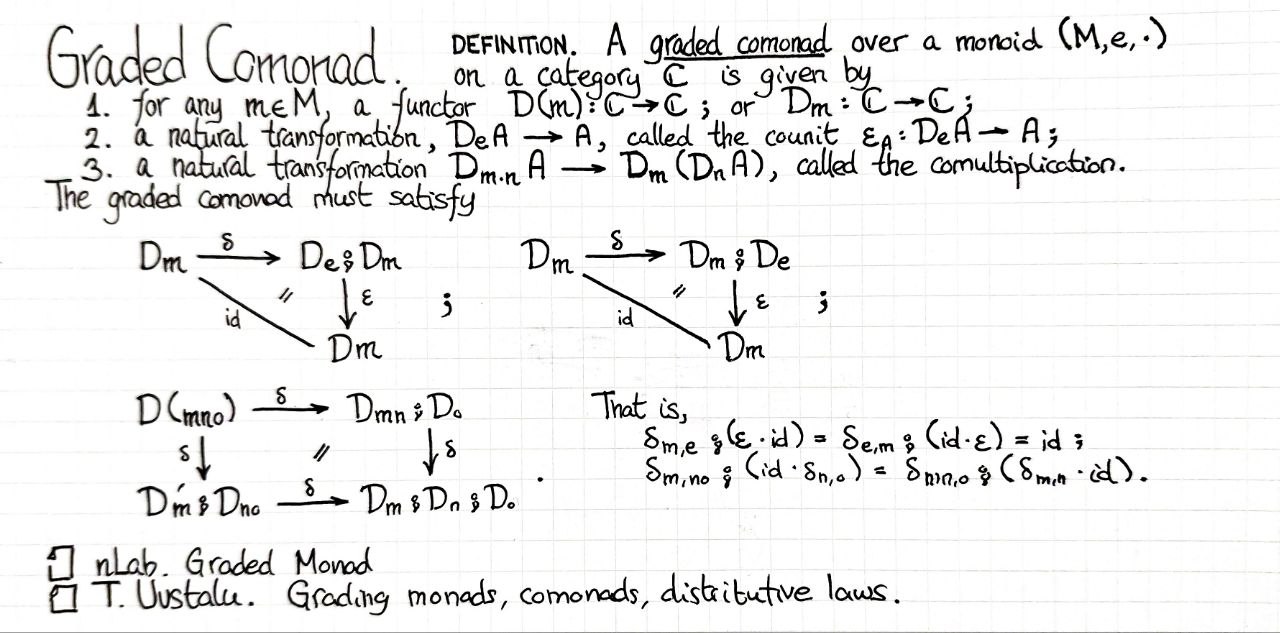 Graded Comonad. DEFINITION. A graded comonad over a monoid (M,e,·)
on a category ℂ is given by
1. for any m∈M, a functor D(m):ℂ→ℂ; or Dₘ:ℂ→ℂ;
2. a natural transformation, DₑA → A, called the counit ε_A: DₑA → A;
3. a natural transformation D_{m·n} A → Dₘ(DₙA), called the comultiplication.
The graded comonad must satisfy
Dₘ δ→ Dₑ⨾Dₘ Dₘ δ→ Dₘ⨾Dₑ
id // ↓ε ; id // ↓ε ;
Dₘ Dₘ
D(mno) δ→ D_{mn}⨾Dₒ That is,
δ↓ // ↓δ δ_{m,e}⨾(ε·id) = δ_{e,m}⨾(id·ε) = id;
Dₘ⨾D_{no} δ→ Dₘ⨾Dₙ⨾Dₒ. δ_{m,no}⨾(id·δ_{n,o}) = δ_{mn,o}⨾(δ_{m,n}·id).
nLab. Graded Monad
T. Uustalu. Grading monads, comonads, distributive laws.